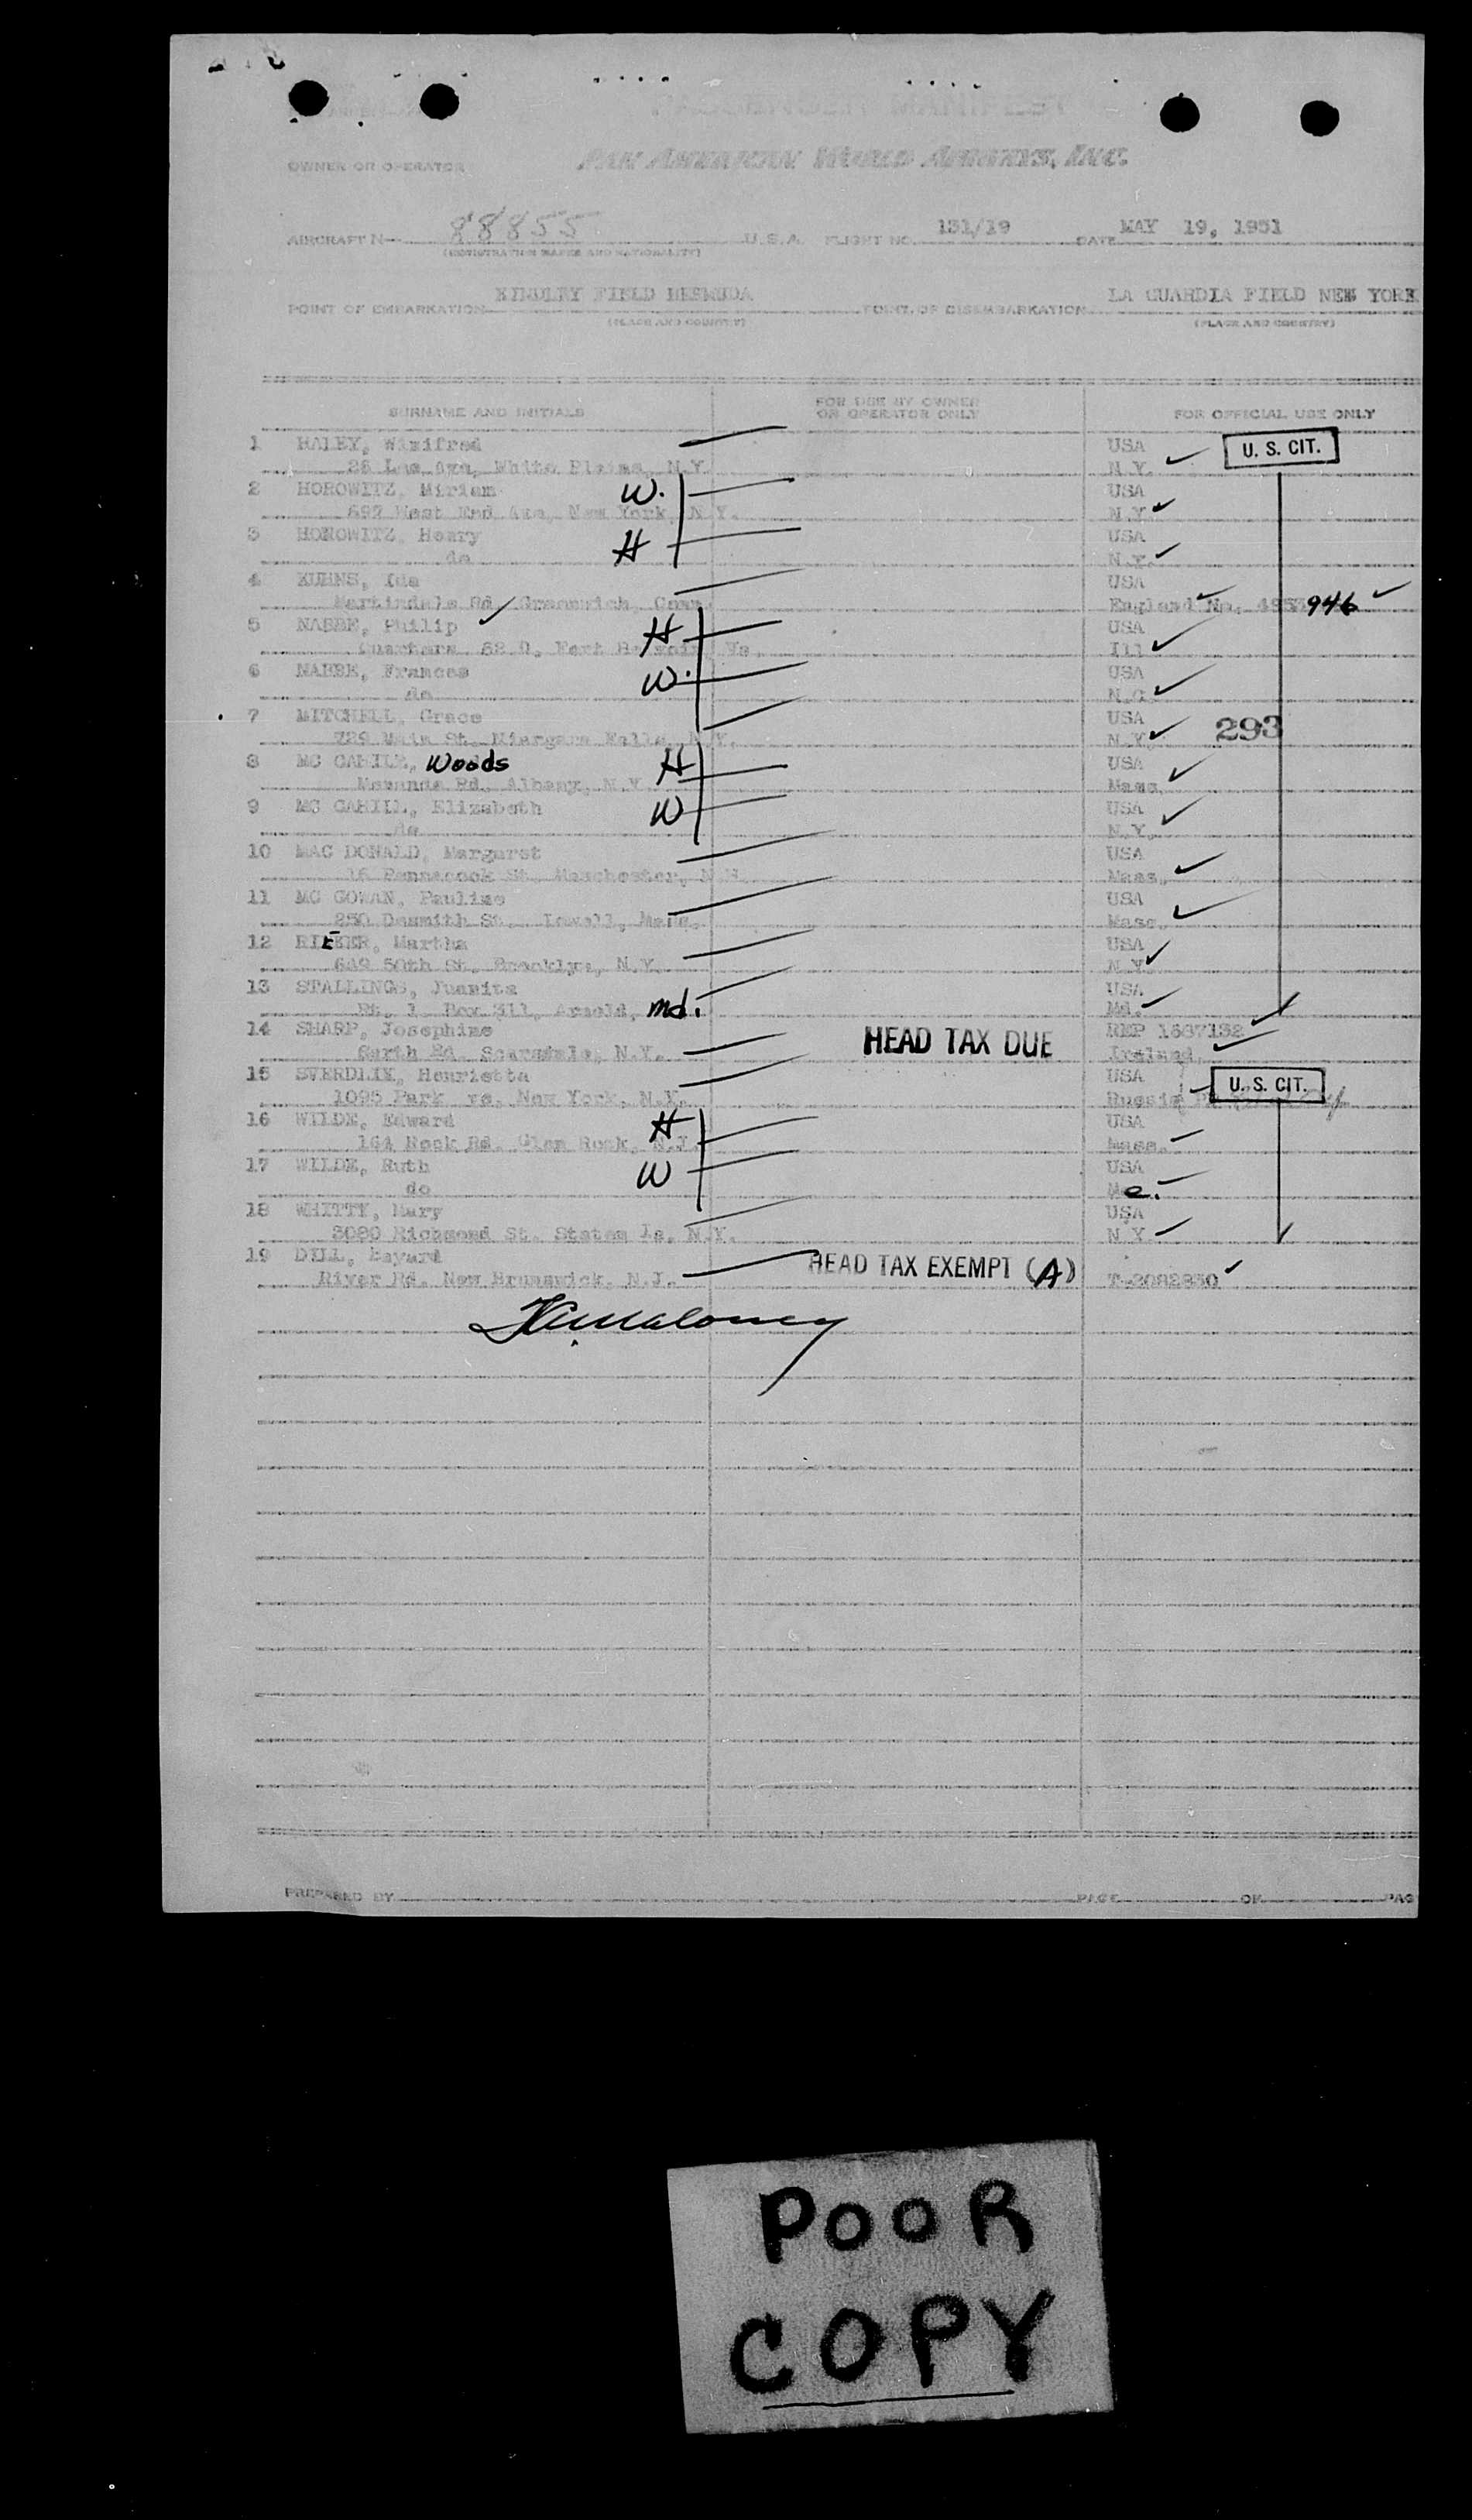 PASSENGER MANIFEST
OWNER OR OPERATOR PAN AMERICAN WORLD AIRWAYS, INC.
AIRCRAFT N 88855 U.S.A. FLIGHT NO. 131/19 DATE MAY 19, 1951
(REGISTRATION MARKS AND NATIONALITY)
POINT OF EMBARKATION KINDLEY FIELD BERMUDA POINT OF DISEMBARKATION LA GUARDIA FIELD NEW YORK
(PLACE AND COUNTRY) (PLACE AND COUNTRY)
SURNAME AND INITIALS FOR USE BY OWNER OR OPERATOR ONLY FOR OFFICIAL USE ONLY
1 HALEY, Winifred USA U. S. CIT.
Ave, White Plains, N.Y. N.Y.
2 HOROWITZ, Miriam W. USA
West End Ave, New York, N.Y. N.Y.
3 HOROWITZ, Henry H USA
do N.Y.
4 KUHNS, Ida USA
Martindale Rd, Greenwich, Conn England No. 946
5 NABBE, Philip H USA
Quarters Fort Belvoir, Va. Ill
6 NABBE, Frances W. USA
do N.C.
7 MITCHELL, Grace USA
729 Main St. Niargara Falls, N.Y. N.Y. 293
8 MC CAHILL, Woods H USA
Rd, Albany, N.Y. Mass.
9 MC CAHILL, Elizabeth W USA
do N.Y.
10 MAC DONALD, Margaret USA
Pennacook St. Manchester, N.H. Mass.
11 MC GOWAN, Pauline USA
St. Lowell, Mass. Mass.
12 Martha USA
649 50th St. Brooklyn, N.Y. N.Y.
13 STALLINGS, Juanita USA
Rt. 1 Box 311, Arnold, Md. Md.
14 SHARP, Josephine HEAD TAX DUE REP 1587132
Garth Rd. Scarsdale, N.Y. Ireland
15 SVERDLIK, Henrietta USA U. S. CIT.
1095 Park New York, N.Y. Russia
16 WILDE, Edward H USA
164 Rock Rd. Glen Rock, N.J. Mass.
17 WILDE, Ruth W USA
do Me.
18 WHITTY, Mary USA
Richmond St. Staten Is. N.Y. N.Y.
19 DILL, Bayard HEAD TAX EXEMPT (A)
River Rd. New Brunswick, N.J. T-2082830
Maloney
PREPARED BY PAGE OF PAG
POOR
COPY